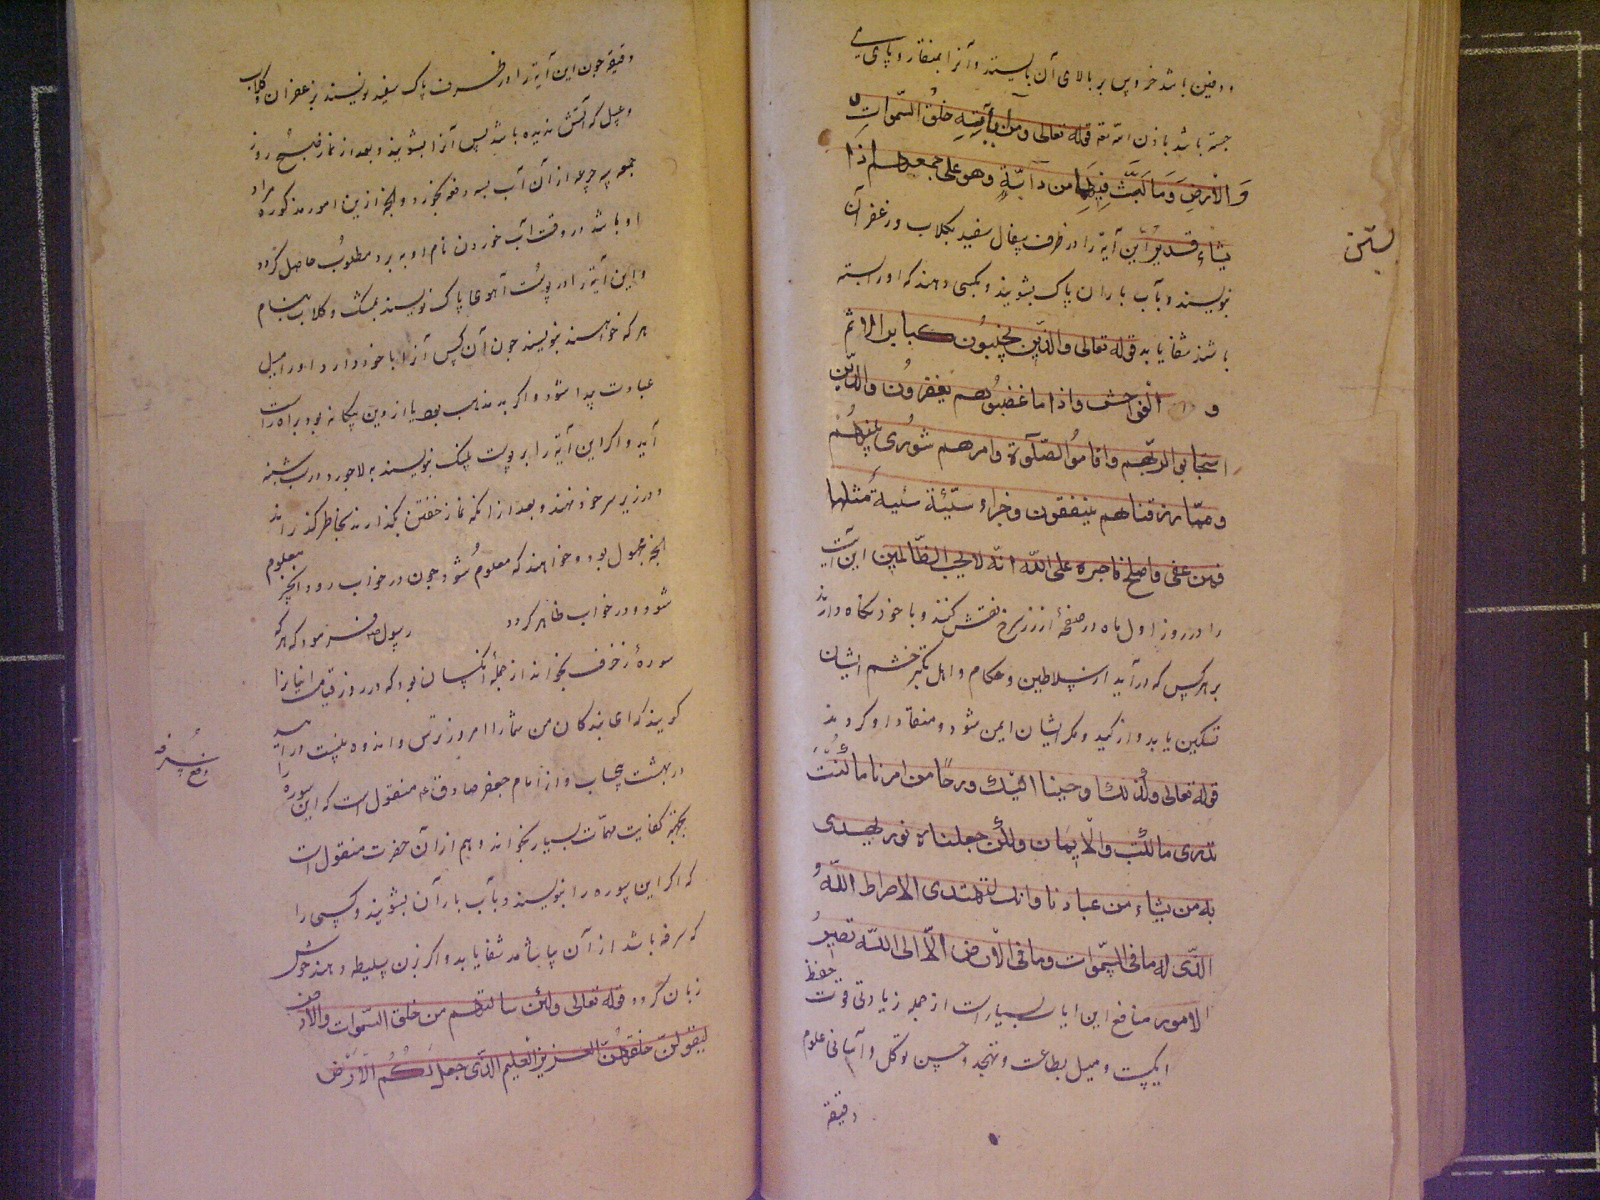 و دفین باشد خروس بر بالای آن بایستد و آنرا بمنقار و پای می
جسته باشد باذن الله تع قوله تعالی و من آیته خلق السموات
والارض وما بث فیهما من دابة وهو علی جمعهم اذا
یشاء قدیر این آیة را در ظرف سفال سفید بکلاب و زعفران
نویسند و بآب باران پاک بشویند و بکسی دهند که او را بسته
باشند شفا یابد قوله تعالی والذین یجتنبون کبایر الاثم
و الفواحش واذا ما غضبوهم یغفرون والذین
استجابو الربهم واقاموا الصلوة وامرهم شوری بینهم
ومما رزقناهم ینفقون وجزاء سیئة سیئة مثلها
فمن عفی واصلح فاجره علی الله انه لا یحب الظالمین این آیت
را در روز اول ماه در صفحهٔ از زر سرخ نقش کنند و با خود نکاه دارند
بر هر کس که درآید از سلاطین و حکام و اهل تکبر خشم ایشان
تسکین یابد و از کید و مکر ایشان ایمن شود و منقاد او کردند
قوله تعالی وکذلک اوحینا الیک روحا من امرنا ما کنت
تدری ما الکتب ولا الایمان ولکن جعلناه نور یهدی
به من یشاء من عبادنا وانک لتهتدی الا صراط الله
الذی له ما فی السموات وما فی الارض الا الی الله تصیر
الامور منافع این ایات بسیار است از جمله زیادتی قوت حفظ
و میل بطاعت و تهجد و حسن توکل و آسانی علوم
دقیقه
بستن
دقیقه جون این آیة را در ظرف پاک سفید نویسند بزعفران و کلاب
و عسل که آتش ندیده باشد پس آنرا بشویند و بعد از نماز صبح روز
جمعه سه جرعه از آن آب بسه دفعه بخورد و انجه ازین امور مذکوره مراد
او باشد در وقت آب خوردن نام او به برد مطلوب حاصل کردد
و این آیة را در پوست آهوی پاک نویسند بمشک و کلاب بنام
هر که خواهند نویسند جون آن کس آنرا با خود دارد او را میل
عبادت پیدا شود و اکر بد مذهب بود یا از دین بیکانه بود براه راست
آید و اکر این آیة را بر پوست پلنک نویسند به لاجورد در شب شنبه
و در زیر سر خود نهند و بعد از آنکه نماز خفتن بکذارند بخاطر کذرانند
انجه مجهول بود و خواهند که معلوم شود جون در خواب رود انجیز معلوم
شود و در خواب ظاهر کردد رسول ص فرمود که هر که
سورهٔ زخرف بخواند از جملهٔ آنکسان بود که در روز قیامت ایشانرا
کویند که ای بندکان من شما را امروز ترس و اندوه نیست درآیید
در بهشت بی حساب و از امام جعفر صادق ع منقول است که این سوره را
بجهة کفایت مهمات بسیار بخوانند و هم از آن حضرت منقول است
که اکر این سوره را نویسند و بآب باران بشویند و کسی را
که سرفه باشد از آن بیاشامد شفا یابد و اکر بزن سلیطه دهند خوش
زبان کردد قوله تعالی ولئن سالتهم من خلق السموات والارض
لیقولن خلقهن العزیز العلیم الذی جعل لکم الارض
دفع سرفه